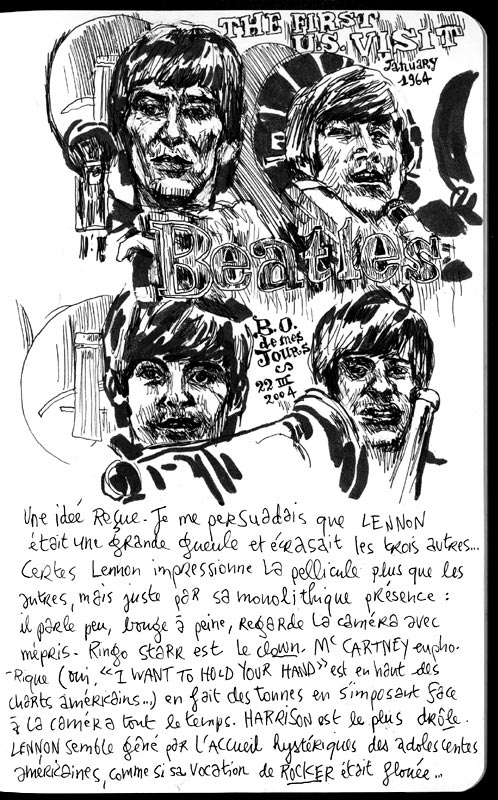 THE FIRST
U.S. VISIT
January
1964
Beatles
B.O.
de mes
JOURS
22 III
2004
Une idée Reçue. Je me persuadais que LENNON
était une grande gueule et écrasait les trois autres...
Certes Lennon impressionne la pellicule plus que les
autres, mais juste par sa monolithique présence :
il parle peu, bouge à peine, regarde la caméra avec
mépris. Ringo Starr est le clown. Mc CARTNEY eupho-
-rique (oui, "I WANT TO HOLD YOUR HAND" est en haut des
charts américains...) en fait des tonnes en s'imposant face
à la caméra tout le temps. HARRISON est le plus drôle.
LENNON semble gêné par l'accueil hystériques des adolescentes
américaines, comme si sa vocation de ROCKER était flouée...